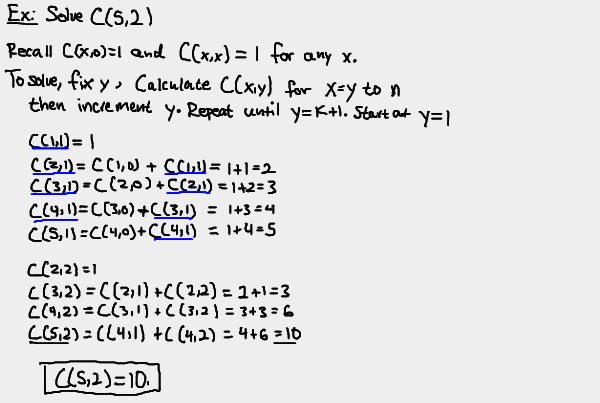 Ex: Solve C(5,2)
Recall C(x,0)=1 and C(x,x)=1 for any x.
To solve, fix y, Calculate C(x,y) for x=y to n
then increment y. Repeat until y=k+1. Start at y=1
C(1,1)=1
C(2,1)=C(1,0)+C(1,1)=1+1=2
C(3,1)=C(2,0)+C(2,1)=1+2=3
C(4,1)=C(3,0)+C(3,1)=1+3=4
C(5,1)=C(4,0)+C(4,1)=1+4=5
C(2,2)=1
C(3,2)=C(2,1)+C(2,2)=2+1=3
C(4,2)=C(3,1)+C(3,2)=3+3=6
C(5,2)=C(4,1)+C(4,2)=4+6=10
C(5,2)=10.